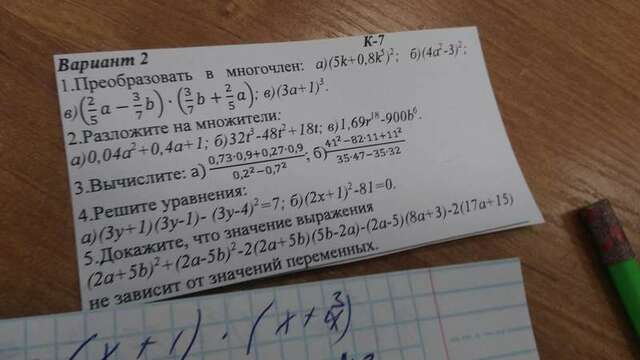 Вариант 2 К-7
1.Преобразовать в многочлен: а)(5k+0,8k⁵)²; б)(4a²-3)²;
в)(2/5 a − 3/7 b) · (3/7 b + 2/5 a); в)(3a+1)³.
2.Разложите на множители:
а)0,04a²+0,4a+1; б)32t³-48t²+18t; в)1,69r¹⁸-900b⁶.
3.Вычислите: а) (0,73·0,9+0,27·0,9)/(0,2²−0,7²); б) (41²−82·11+11²)/(35·47−35·32)
4.Решите уравнения:
а)(3y+1)(3y-1)- (3y-4)²=7; б)(2x+1)²-81=0.
5.Докажите, что значение выражения
(2a+5b)²+(2a-5b)²-2(2a+5b)(5b-2a)-(2a-5)(8a+3)-2(17a+15)
не зависит от значений переменных.
(x + 1) · (x + 3/x)